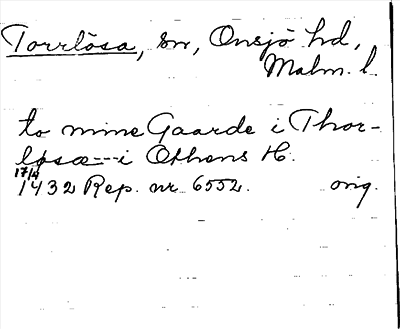 Torrlösa, sn, Onsjö hd,
Malm. l.
to mine Gaarde i Thor-
løsæ--i Othens H.
17/4
1432 Rep. nr. 6552. orig.